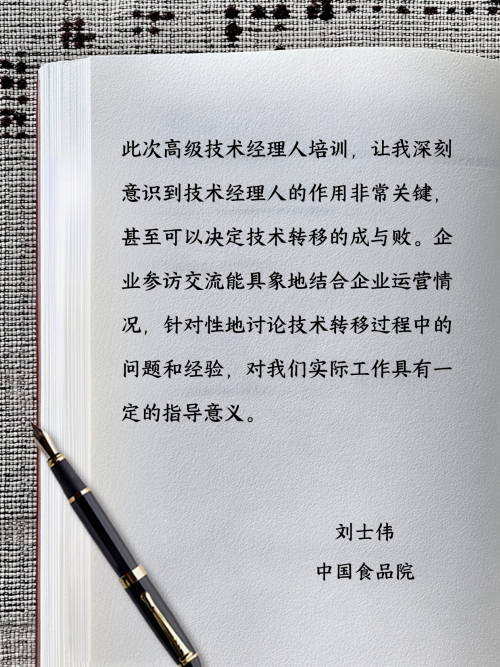 此次高级技术经理人培训，让我深刻
意识到技术经理人的作用非常关键，
甚至可以决定技术转移的成与败。企
业参访交流能具象地结合企业运营情
况，针对性地讨论技术转移过程中的
问题和经验，对我们实际工作具有一
定的指导意义。
刘士伟
中国食品院